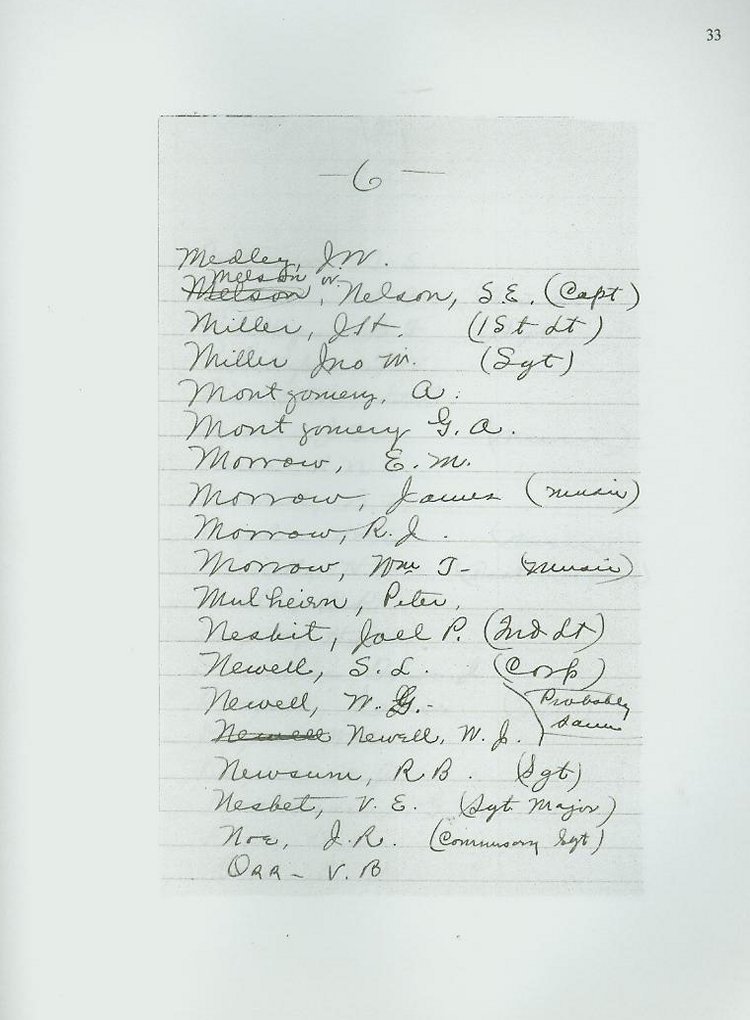 33
— 6 —
Medley, J.W.
Melson or
Melson, Nelson, S.E. (Capt)
Miller, J.H. (1St Lt)
Miller Jno W. (Sgt)
Montgomery, A.
Montgomery G.A.
Morrow, E.M.
Morrow, James (music)
Morrow, R.J.
Morrow, Wm J- (music)
Mulheirn, Peter,
Nesbit, Joel P. (2nd Lt)
Newell, S.L. (Corp)
Newell, W.G.- Probably
Newell Newell, W.J. Same
Newsum, R B. (Sgt)
Nesbet, V.E. (Sgt Major)
Noe, J.R. (Commissary Sgt)
Orr - V.B